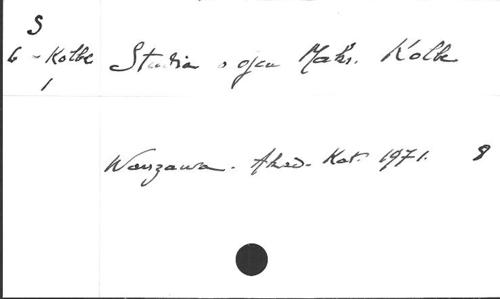 S
6 - Kolbe
1
Studia o ojcu Maks. Kolbe
Warszawa. Akad. Kat. 1971. 8